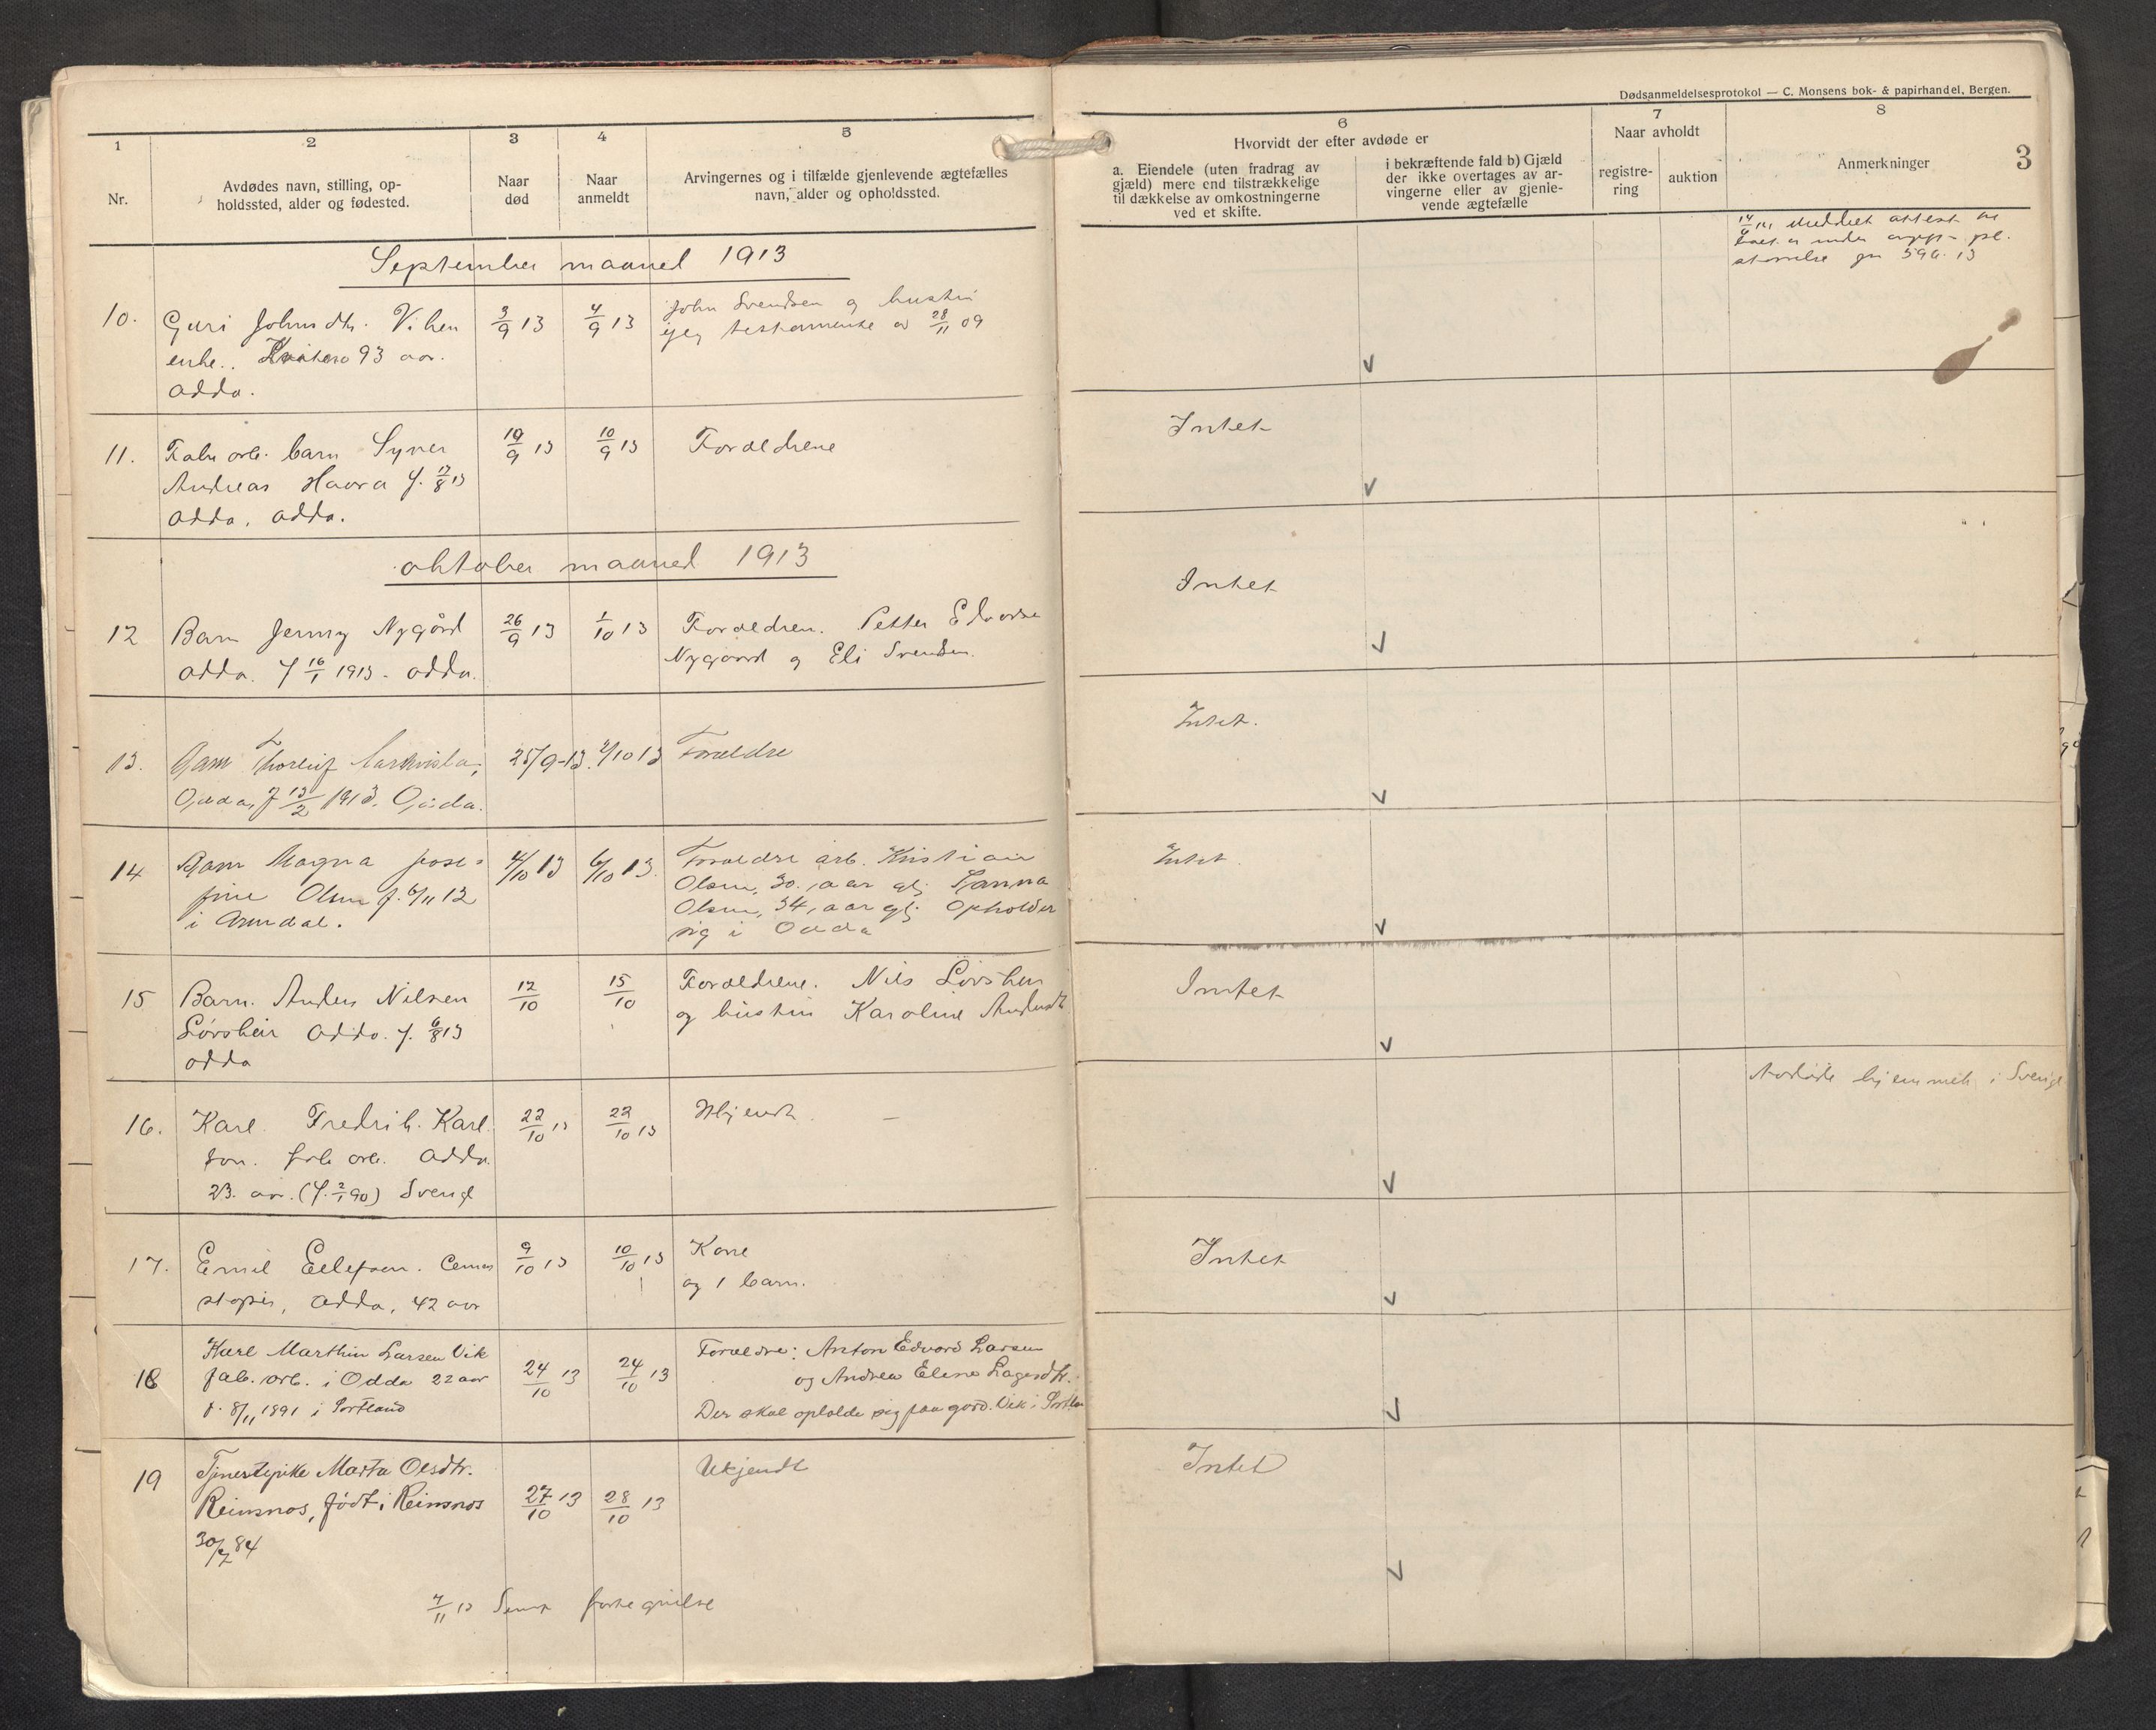 Dødsanmeldelsesprotokol — C. Monsens bok- & papirhandel, Bergen.
3
1
Nr.
2
Avdødes navn, stilling, op-
holdssted, alder og fødested.
3
Naar
død
4
Naar
anmeldt
5
Arvingernes og i tilfælde gjenlevende ægtefælles
navn, alder og opholdssted.
6
Hvorvidt der efter avdøde er
a. Eiendele (uten fradrag av
gjæld) mere end tilstrækkelige
til dækkelse av omkostningerne
ved et skifte.
i bekræftende fald b) Gjæld
der ikke overtages av ar-
vingerne eller av gjenle-
vende ægtefælle
7
Naar avholdt
registre-
ring
auktion
8
Anmerkninger
September maaned 1913
10.
Guri Johnsdtr.
enke. 93 aar.
Odda.
3/9 13
4/9 13
John Svendsen og hustru
testamente av 28/11 09
Meddelt attest
596. 13
11.
Fabr arb. barn
Andreas f. 8 13
Odda. Odda.
19/9 13
10/9 13
Foræeldrene
Intet
oktober maaned 1913
12
Barn Jenny Nygård
Odda. f 16/1 1913 - Odda.
26/9 13
1/10 13
Forældren. Petter
Nygaard og Eli Svendsen.
Intet
13.
Barn Thorleif
Odda, f 13/2 1913. Odda.
25/9-13.
2/10 13
Forældre
Intet.
14
Barn Magna Jose=
fine Olsen f. 6/11 12
i Arendal.
4/10 13
6/10 13.
Forældre arb. Kristian
Olsen, 30, aar og
Olsen, 34, aar Opholder
sig i Odda
Intet.
15
Barn. Anders Nilsen
Odda. f. 6/8 13
Odda
12/10
15/10
Forældrene. Nils
og hustru Karoline
Intet
16.
Karl Fredrik Karl
son. fab arb. Odda.
23. aar. (f. 2/1 90)
22/10 13
22/10 13
Ukjendt. —
Avdøde hjemmeh. i Sverige
17.
Emil Ellefsen.
støper, Odda, 42 aar
9/10 13
10/10 13
Kone
og 1 barn.
Intet
18
Karl Marthin Larsen Vik
fab. arb. i Odda 22 aar
f. 8/11 1891 i
24/10 13
24/10 13
Forældre: Anton Edvard Larsen
og Andrea Elene
Der skal opholde sig paa gård. Vik i
19
Tjenestepike Marta Olsdtr.
Reinsnos, født i Reinsnos
30/7 84
27/10 13
28/10 13
Ukjendt
Intet
7/11 13 Sendt fortegnelse